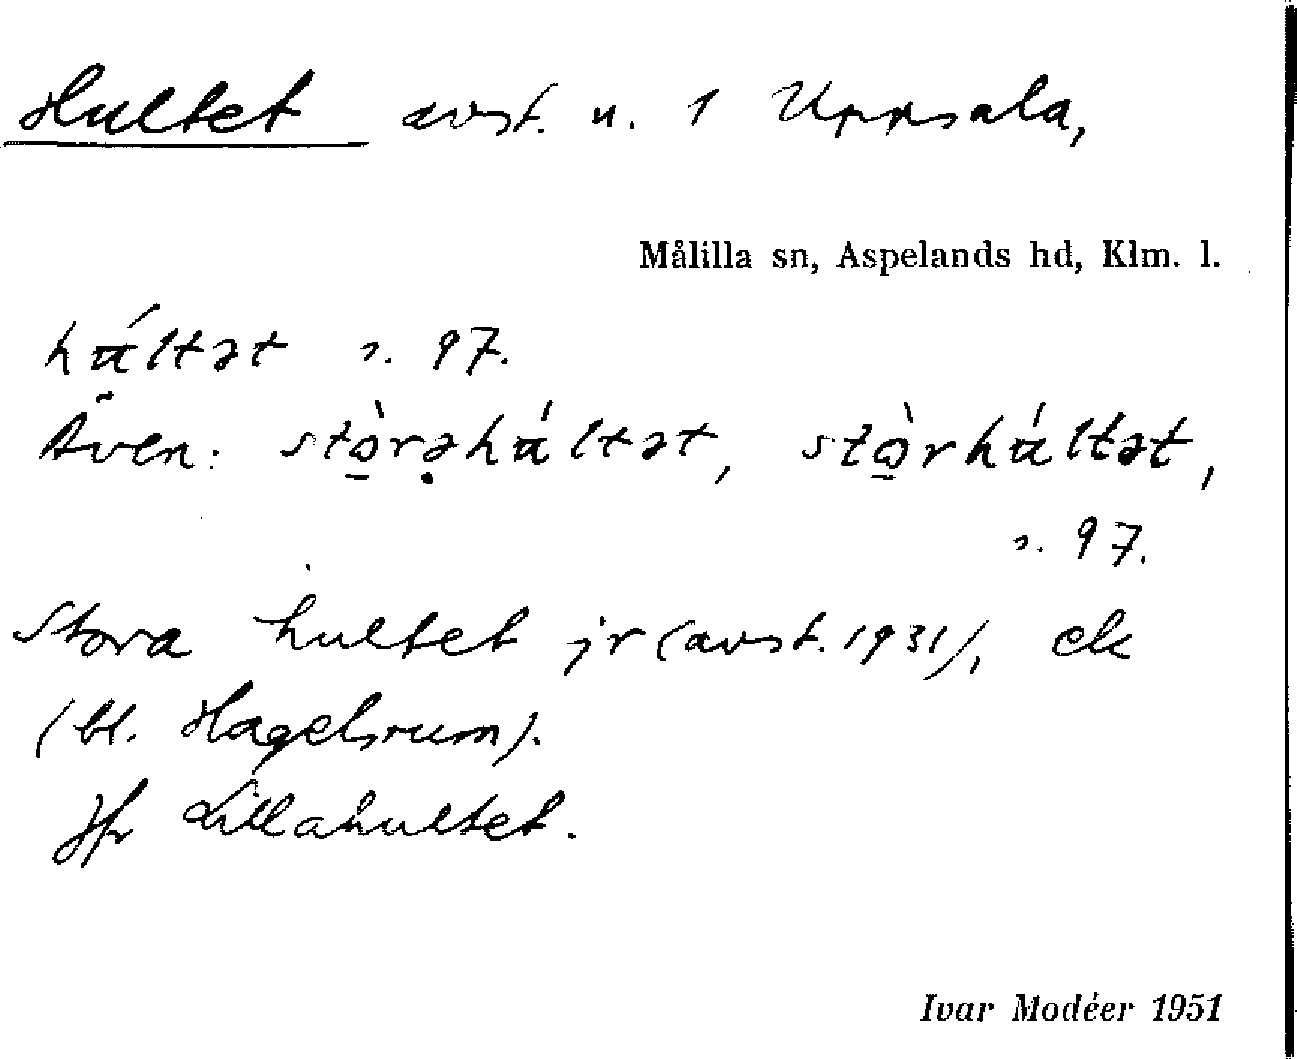 Hultet avst. u. 1 Uppsala,
Målilla sn, Aspelands hd, Klm. l.
húltət s. 97.
Även: stò̱rə̣húltət, stò̱rhúltət,
s. 97.
Stora hultet jr (avst. 1931), ek
(bl. Hagelsrum).
Jfr Lillahultet.
Ivar Modéer 1951